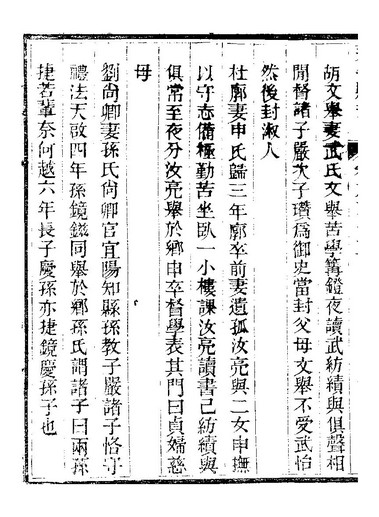 胡文舉妻武氏文舉苦學篝鐙夜讀武紡績與俱聲相
聞督諸子嚴次子瓚爲御史當封父母文舉不受武怡
然後封淑人
杜廓妻申氏歸三年廓卒前妻遺孤汝亮與二女申撫
以守志備極勤苦坐臥一小樓課汝亮讀書己紡績與
俱常至夜分汝亮舉於鄉申卒督學表其門曰貞婦慈
母
劉尚卿妻孫氏尚卿官宜陽知縣孫教子嚴諸子恪守
禮法天啟四年孫鏡鎡同舉於鄉孫氏謂諸子曰兩孫
捷若輩奈何越六年長子慶孫亦捷鏡慶孫子也